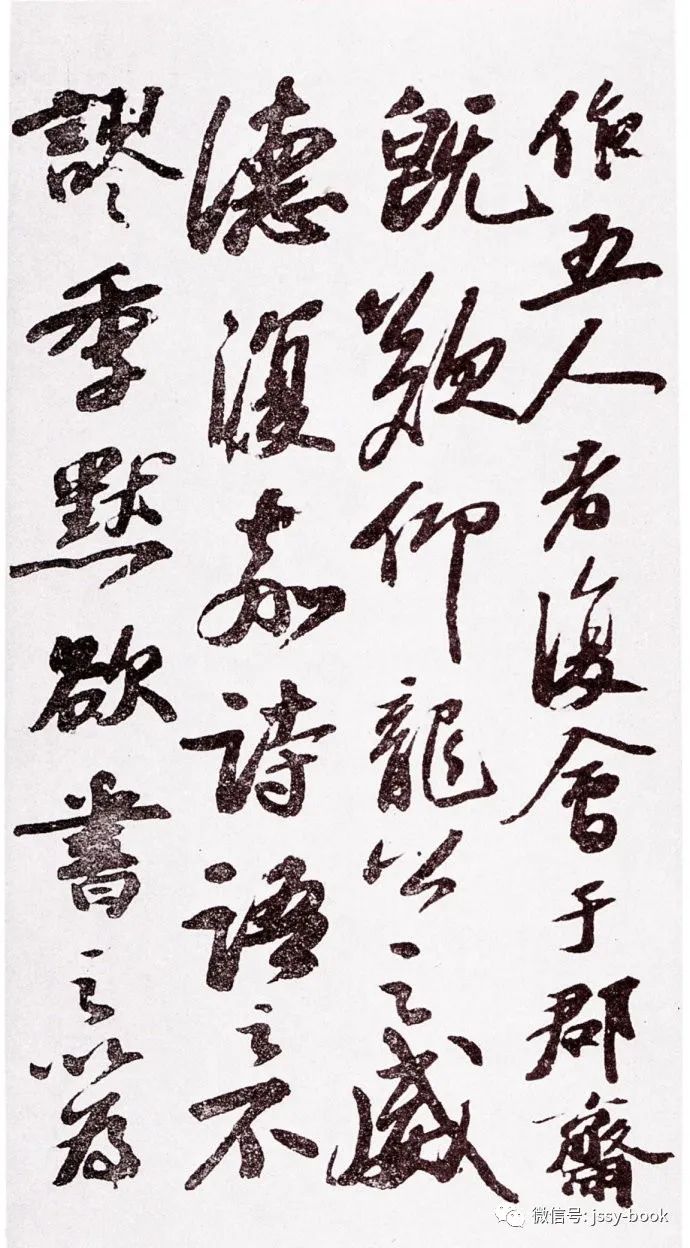 作五人者復會于郡齋
既歎仰龍公之威
德復嘉詩語之不
謬季默欲書之以為
微信号: jssy-book